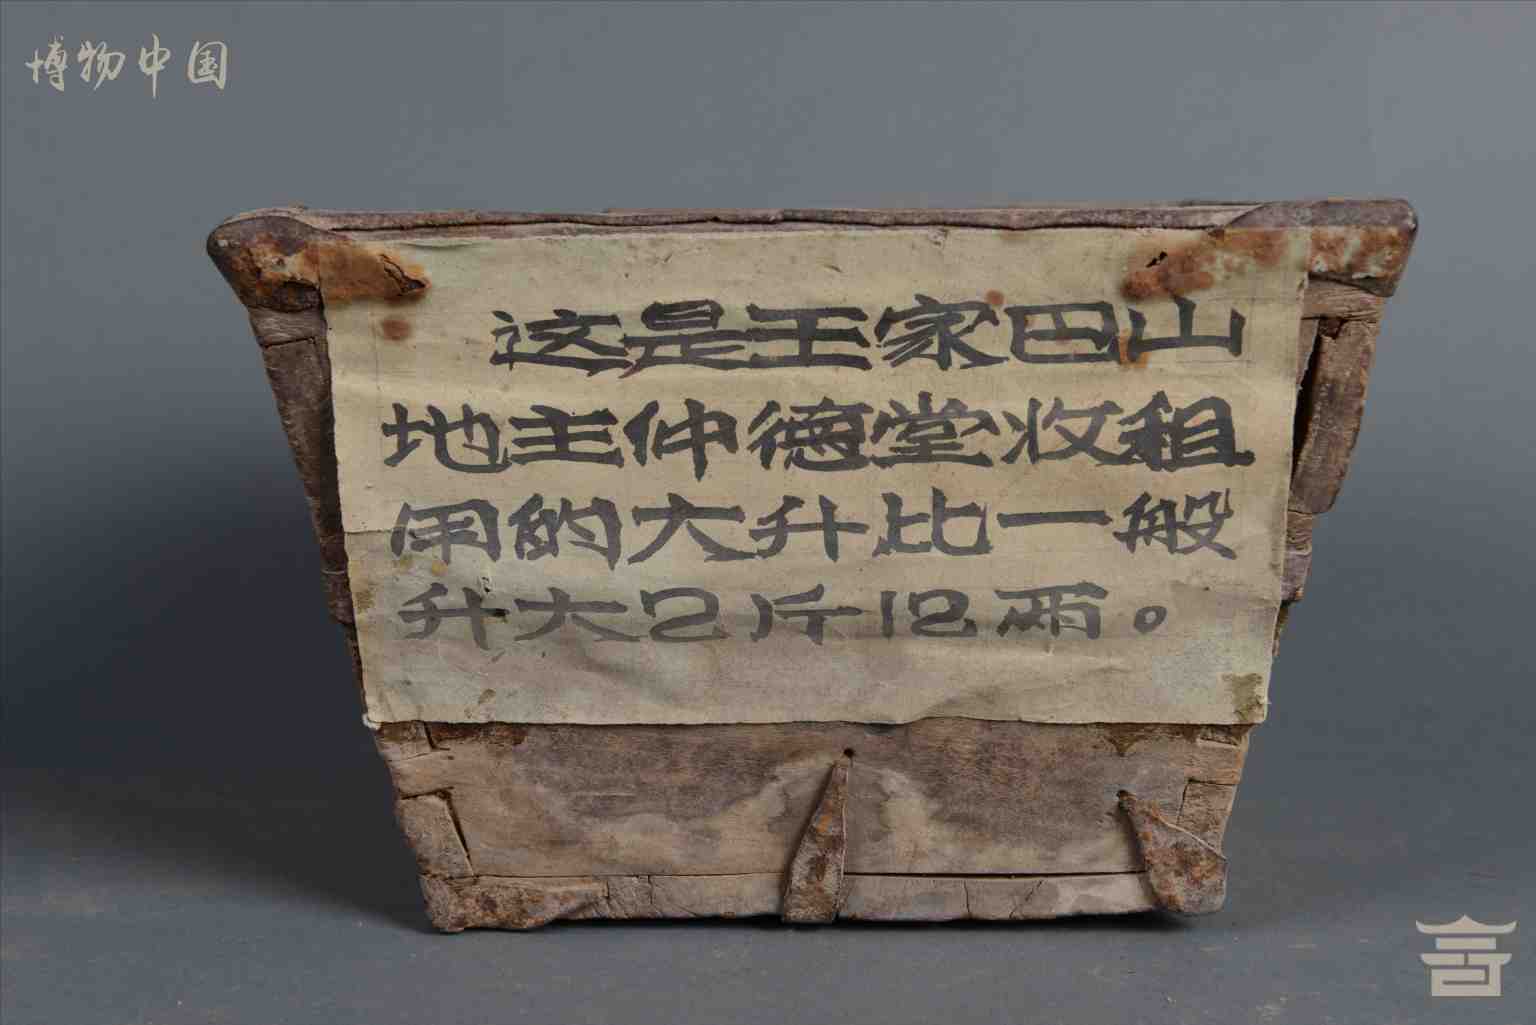 博物中国
这是王家巴山
地主仲德堂收租
用的大升比一般
升大2斤12两。